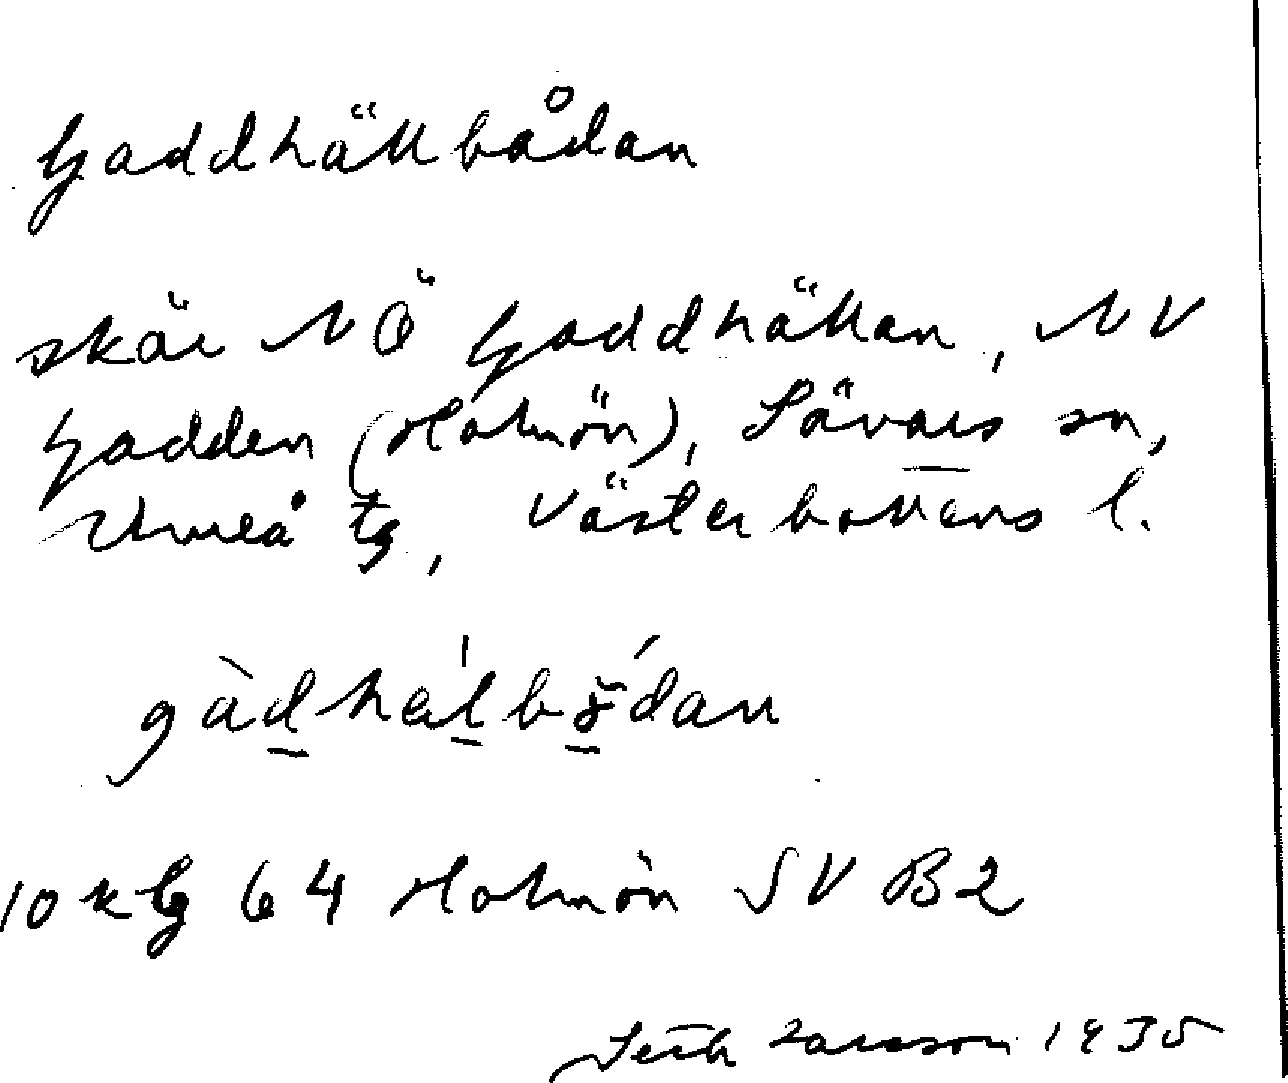 Gaddhällbådan
skär NÖ Gaddhällan, NV
Gadden (Holmön), Sävars sn,
Umeå tg, Västerbottens l.
10 k bl 64 Holmön SV B2
Larsson 1935